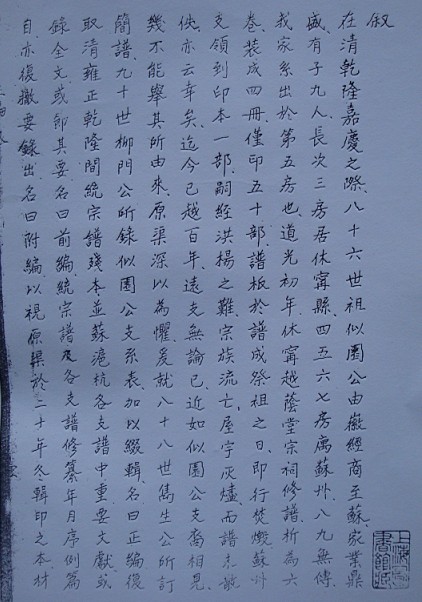 叙
在清乾隆嘉慶之際八十六世祖似園公由徽經商至蘇家業鼎
盛有子九人長次三房居休寧縣四五六七房寓蘇州八九無傳
我家系出於第五房也道光初年休寧越蔭堂宗祠修譜析為六
卷裝成四冊僅印五十部譜板於譜成祭祖之日即行焚燬蘇州
支領到印本一部嗣經洪楊之難宗族流亡屋宇灰燼而譜未散
佚亦云幸矣迄今已越百年遠支無論已近如似園公支裔相見
幾不能舉其所由來原渠深以為懼爰就八十八世雋生公所訂
簡譜九十世柳門公所錄似園公支系表加以綴輯名曰正編復
取清雍正乾隆間統宗譜殘本並蘇滬杭各支譜中重要文獻或
錄全文或節其要名曰前編統宗譜及各支譜修纂年月序例篇
目亦復撮要錄出名曰附編以視原渠於二十年冬輯印之本材
上海圖書館藏